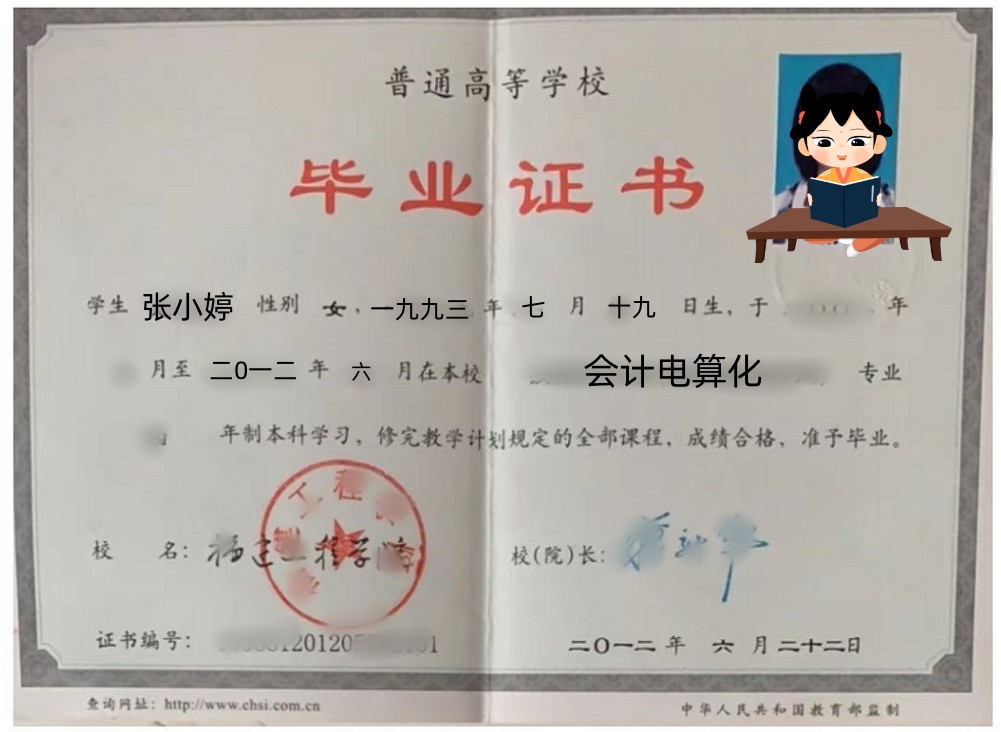 普通高等学校
毕业证书
学生 张小婷 性别 女，一九九三 年 七 月 十九 日生，于 年
月至 二〇一二 年 六 月在本校 会计电算化 专业
年制本科学习，修完教学计划规定的全部课程，成绩合格，准予毕业。
校 名： 福建工程学院
校(院)长：
证书编号：
二〇一二 年 六 月 二十二日
查询网址：http://www.chsi.com.cn
中华人民共和国教育部监制